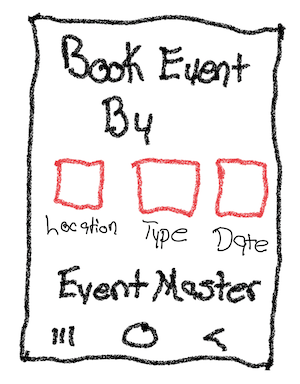 Book Event
By
Location Type Date
Event Master